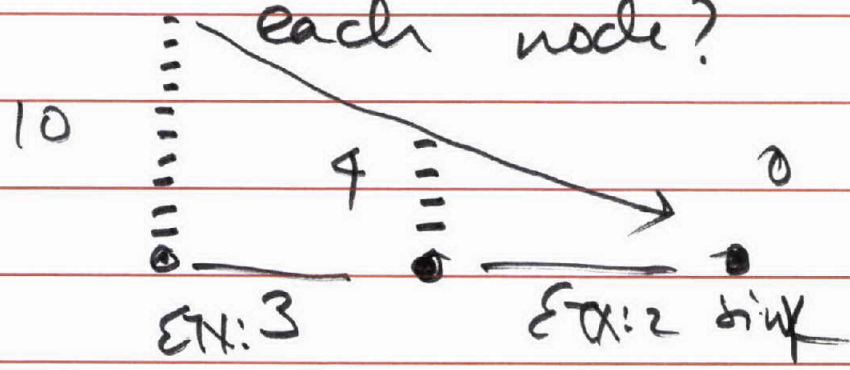 each node?
10
4
0
ETX: 3
ETX: 2 sink